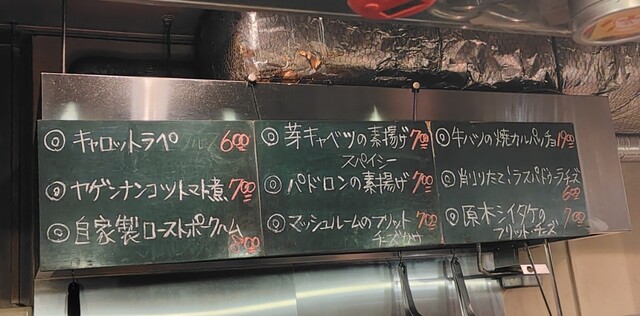 ◎キャロットラペ 600
◎ヤゲンナンコツトマト煮 700
◎自家製ローストポークハム
900
◎芽キャベツの素揚げ 700
スパイシー
◎パドロンの素揚げ 700
◎マッシュルームのフリット 700
チーズ
◎牛ハツの焼カルパッチョ 1900
◎削りたて!ラスパドゥーラチーズ
600
◎原木シイタケの 700
フリット・チーズ